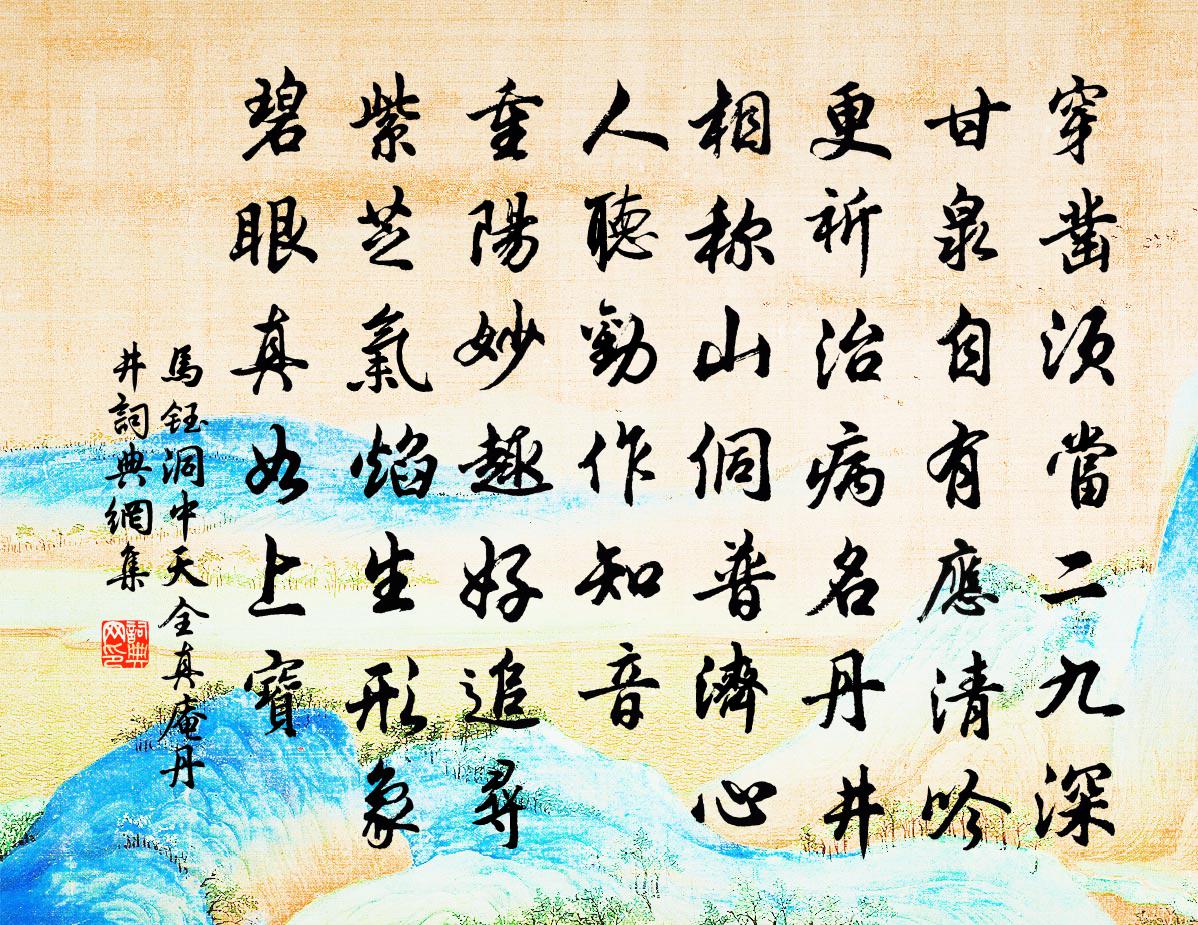 穿凿須當二九深
甘泉自有應清吟
更祈治病名丹井
相称山侗普濟心
人聽勸作知音
重陽妙趣好追尋
紫芝氣焰生形象
碧眼真如上寶
馬鈺洞中天全真庵丹
井詞典網集
詞典